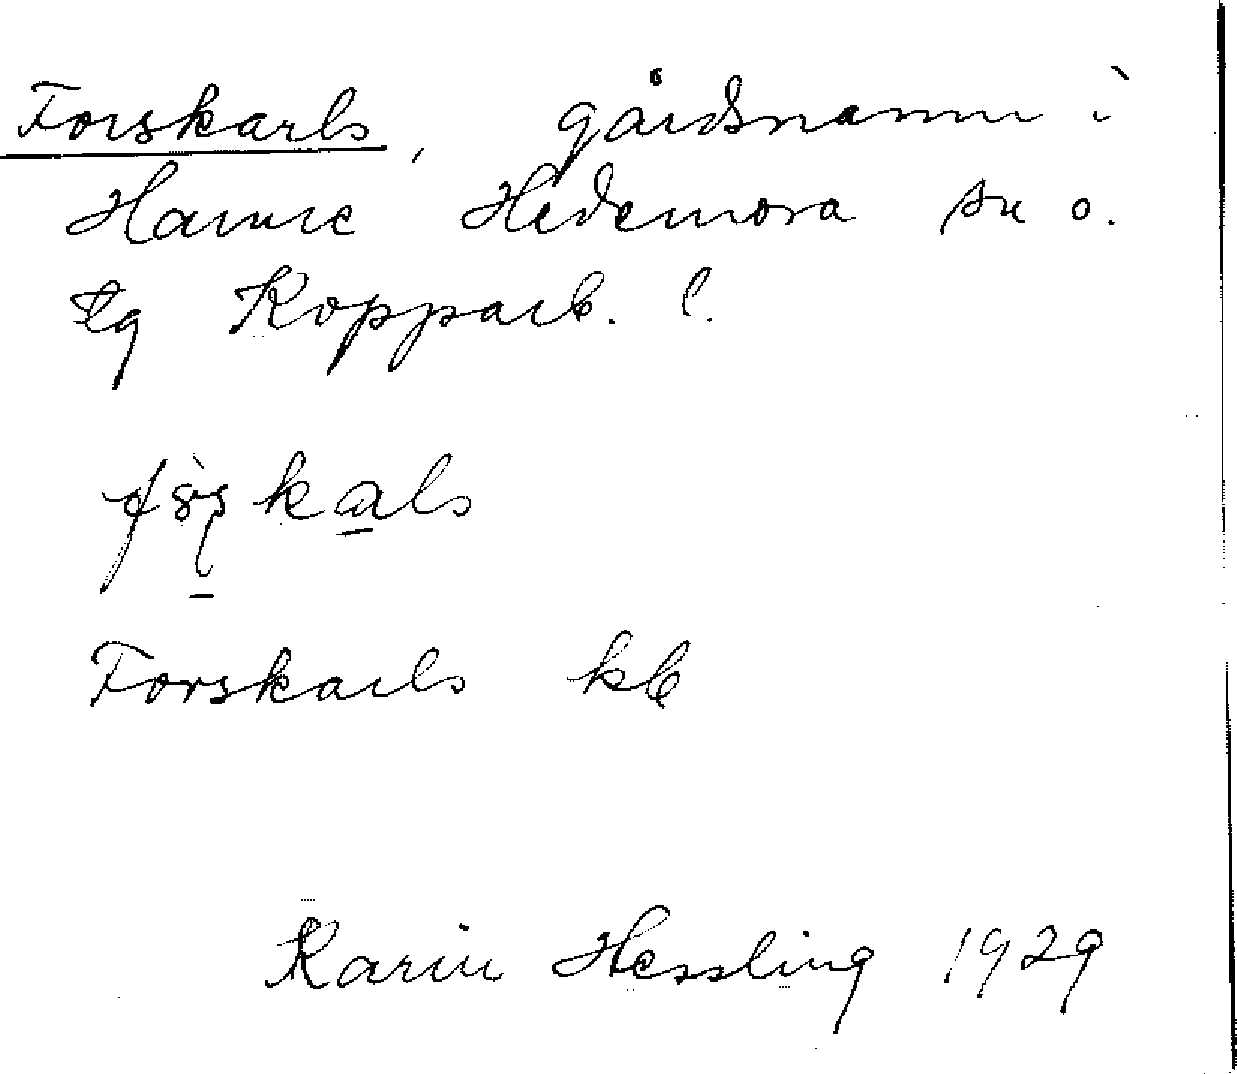 Forskarls, gårdsnamn i
Hamre Hedemora sn o.
tg Kopparb. l.
Forskarls kb
Karin Hessling 1929